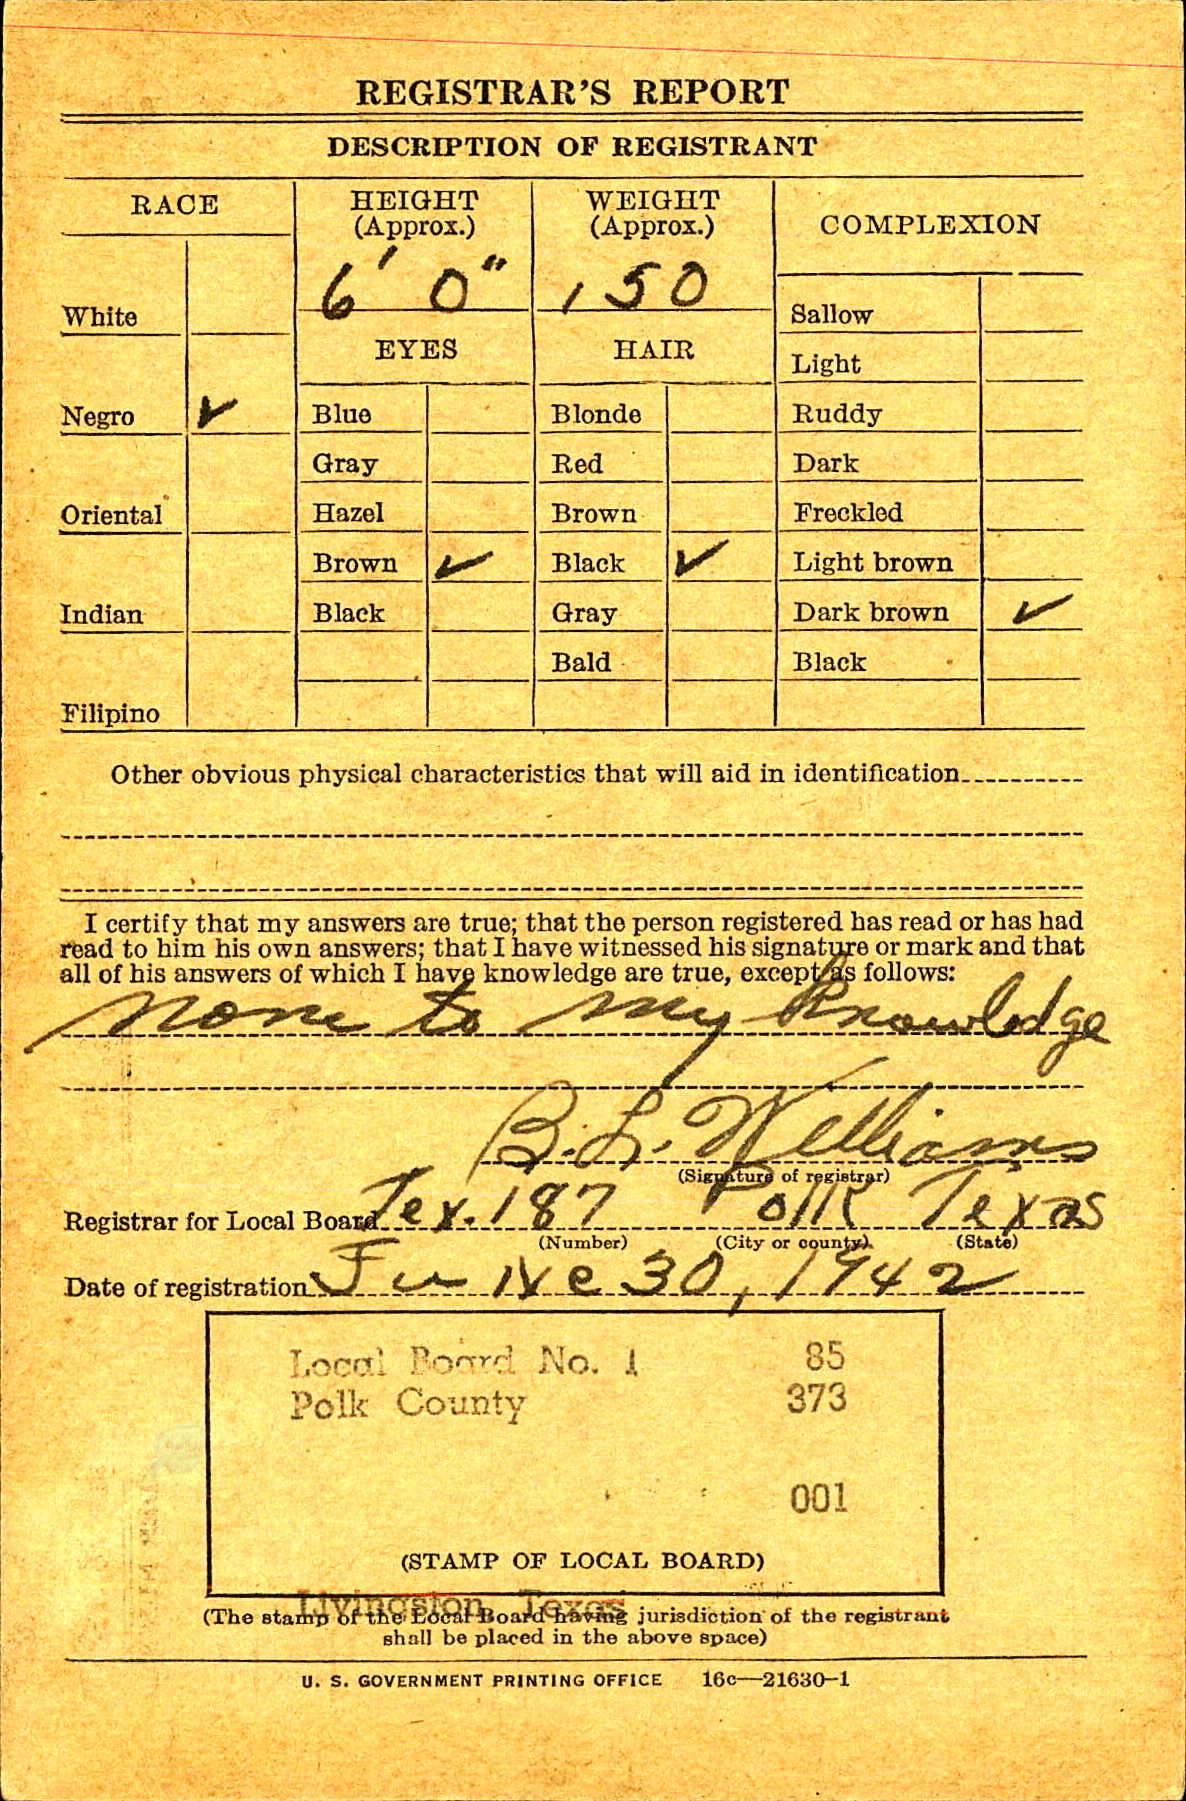 REGISTRAR'S REPORT
DESCRIPTION OF REGISTRANT
RACE
White
Negro ✓
Oriental
Indian
Filipino
HEIGHT
(Approx.)
6' 0"
WEIGHT
(Approx.)
150
EYES
Blue
Gray
Hazel
Brown ✓
Black
HAIR
Blonde
Red
Brown
Black ✓
Gray
Bald
COMPLEXION
Sallow
Light
Ruddy
Dark
Freckled
Light brown
Dark brown ✓
Black
Other obvious physical characteristics that will aid in identification
I certify that my answers are true; that the person registered has read or has had
read to him his own answers; that I have witnessed his signature or mark and that
all of his answers of which I have knowledge are true, except as follows:
None to my knowledge
B. L. Williams
(Signature of registrar)
Registrar for Local Board Tex. 187 Polk Texas
(Number) (City or county) (State)
Date of registration June 30, 1942
Local Board No. 1 85
Polk County 373
001
(STAMP OF LOCAL BOARD)
Livingston, Texas
(The stamp of the Local Board having jurisdiction of the registrant
shall be placed in the above space)
U. S. GOVERNMENT PRINTING OFFICE 16c—21630-1